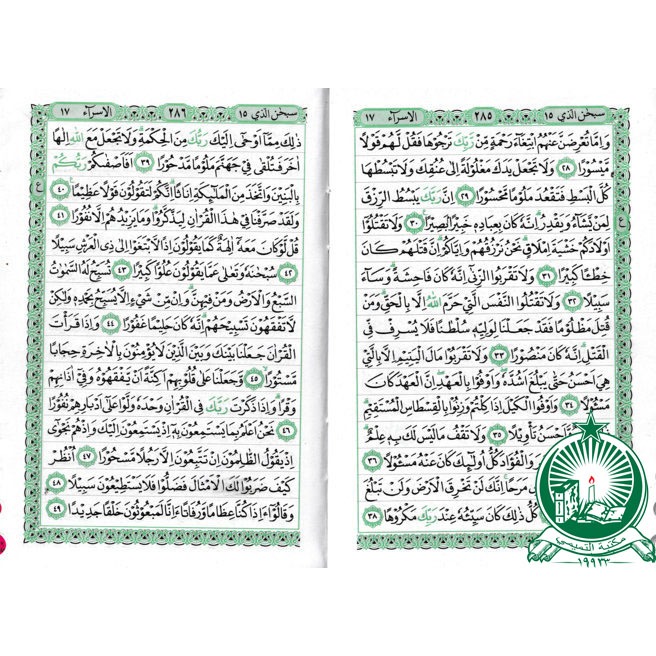 سبحن الذي ١٥ ٢٨٥ الاسرآء ١٧
وَاِمَّا تُعْرِضَنَّ عَنْهُمُ ابْتِغَآءَ رَحْمَةٍ مِنْ رَبِّكَ تَرْجُوهَا فَقُلْ لَهُمْ قَوْلًا
مَيْسُورًا ٢٨ وَلَا تَجْعَلْ يَدَكَ مَغْلُولَةً اِلٰى عُنُقِكَ وَلَا تَبْسُطْهَا
كُلَّ الْبَسْطِ فَتَقْعُدَ مَلُومًا مَحْسُورًا ٢٩ اِنَّ رَبَّكَ يَبْسُطُ الرِّزْقَ
لِمَنْ يَشَآءُ وَيَقْدِرُ اِنَّهُ كَانَ بِعِبَادِهِ خَبِيرًا بَصِيرًا ٣٠ وَلَا تَقْتُلُوٓا
اَوْلَادَكُمْ خَشْيَةَ اِمْلَاقٍ نَحْنُ نَرْزُقُهُمْ وَاِيَّاكُمْ اِنَّ قَتْلَهُمْ كَانَ
خِطْـًٔا كَبِيرًا ٣١ وَلَا تَقْرَبُوا الزِّنٰى اِنَّهُ كَانَ فَاحِشَةً وَسَآءَ
سَبِيلًا ٣٢ وَلَا تَقْتُلُوا النَّفْسَ الَّتِي حَرَّمَ اللّٰهُ اِلَّا بِالْحَقِّ وَمَنْ
قُتِلَ مَظْلُومًا فَقَدْ جَعَلْنَا لِوَلِيِّهِ سُلْطَانًا فَلَا يُسْرِفْ فِي
الْقَتْلِ اِنَّهُ كَانَ مَنْصُورًا ٣٣ وَلَا تَقْرَبُوا مَالَ الْيَتِيمِ اِلَّا بِالَّتِي
هِيَ اَحْسَنُ حَتّٰى يَبْلُغَ اَشُدَّهُ وَاَوْفُوا بِالْعَهْدِ اِنَّ الْعَهْدَ كَانَ
مَسْـُٔولًا ٣٤ وَاَوْفُوا الْكَيْلَ اِذَا كِلْتُمْ وَزِنُوا بِالْقِسْطَاسِ الْمُسْتَقِيمِ
وَاَحْسَنُ تَأْوِيلًا ٣٥ وَلَا تَقْفُ مَا لَيْسَ لَكَ بِهِ عِلْمٌ
وَالْفُؤَادَ كُلُّ اُولٰٓئِكَ كَانَ عَنْهُ مَسْـُٔولًا ٣٦
مَرَحًا اِنَّكَ لَنْ تَخْرِقَ الْاَرْضَ وَلَنْ تَبْلُغَ
كُلُّ ذٰلِكَ كَانَ سَيِّئُهُ عِنْدَ رَبِّكَ مَكْرُوهًا ٣٨
سبحن الذي ١٥ ٢٨٦ الاسرآء ١٧
ذٰلِكَ مِمَّٓا اَوْحٰٓى اِلَيْكَ رَبُّكَ مِنَ الْحِكْمَةِ وَلَا تَجْعَلْ مَعَ اللّٰهِ اِلٰهًا
اٰخَرَ فَتُلْقٰى فِي جَهَنَّمَ مَلُومًا مَدْحُورًا ٣٩ اَفَاَصْفٰيكُمْ رَبُّكُمْ
بِالْبَنِينَ وَاتَّخَذَ مِنَ الْمَلٰٓئِكَةِ اِنَاثًا اِنَّكُمْ لَتَقُولُونَ قَوْلًا عَظِيمًا ٤٠
وَلَقَدْ صَرَّفْنَا فِي هٰذَا الْقُرْاٰنِ لِيَذَّكَّرُوا وَمَا يَزِيدُهُمْ اِلَّا نُفُورًا ٤١
قُلْ لَوْ كَانَ مَعَهُٓ اٰلِهَةٌ كَمَا يَقُولُونَ اِذًا لَابْتَغَوْا اِلٰى ذِي الْعَرْشِ سَبِيلًا
٤٢ سُبْحَانَهُ وَتَعَالٰى عَمَّا يَقُولُونَ عُلُوًّا كَبِيرًا ٤٣ تُسَبِّحُ لَهُ السَّمٰوَاتُ
السَّبْعُ وَالْاَرْضُ وَمَنْ فِيهِنَّ وَاِنْ مِنْ شَيْءٍ اِلَّا يُسَبِّحُ بِحَمْدِهِ وَلٰكِنْ
لَا تَفْقَهُونَ تَسْبِيحَهُمْ اِنَّهُ كَانَ حَلِيمًا غَفُورًا ٤٤ وَاِذَا قَرَأْتَ
الْقُرْاٰنَ جَعَلْنَا بَيْنَكَ وَبَيْنَ الَّذِينَ لَا يُؤْمِنُونَ بِالْاٰخِرَةِ حِجَابًا
مَسْتُورًا ٤٥ وَجَعَلْنَا عَلٰى قُلُوبِهِمْ اَكِنَّةً اَنْ يَفْقَهُوهُ وَفِٓي اٰذَانِهِمْ
وَقْرًا وَاِذَا ذَكَرْتَ رَبَّكَ فِي الْقُرْاٰنِ وَحْدَهُ وَلَّوْا عَلٰٓى اَدْبَارِهِمْ نُفُورًا
٤٦ نَحْنُ اَعْلَمُ بِمَا يَسْتَمِعُونَ بِهِٓ اِذْ يَسْتَمِعُونَ اِلَيْكَ وَاِذْ هُمْ نَجْوٰٓى
اِذْ يَقُولُ الظَّالِمُونَ اِنْ تَتَّبِعُونَ اِلَّا رَجُلًا مَسْحُورًا ٤٧ اُنْظُرْ
كَيْفَ ضَرَبُوا لَكَ الْاَمْثَالَ فَضَلُّوا فَلَا يَسْتَطِيعُونَ سَبِيلًا ٤٨
وَقَالُٓوا ءَاِذَا كُنَّا عِظَامًا وَرُفَاتًا ءَاِنَّا لَمَبْعُوثُونَ خَلْقًا جَدِيدًا ٤٩
مكتبة التميمي
١٩٩٢٣